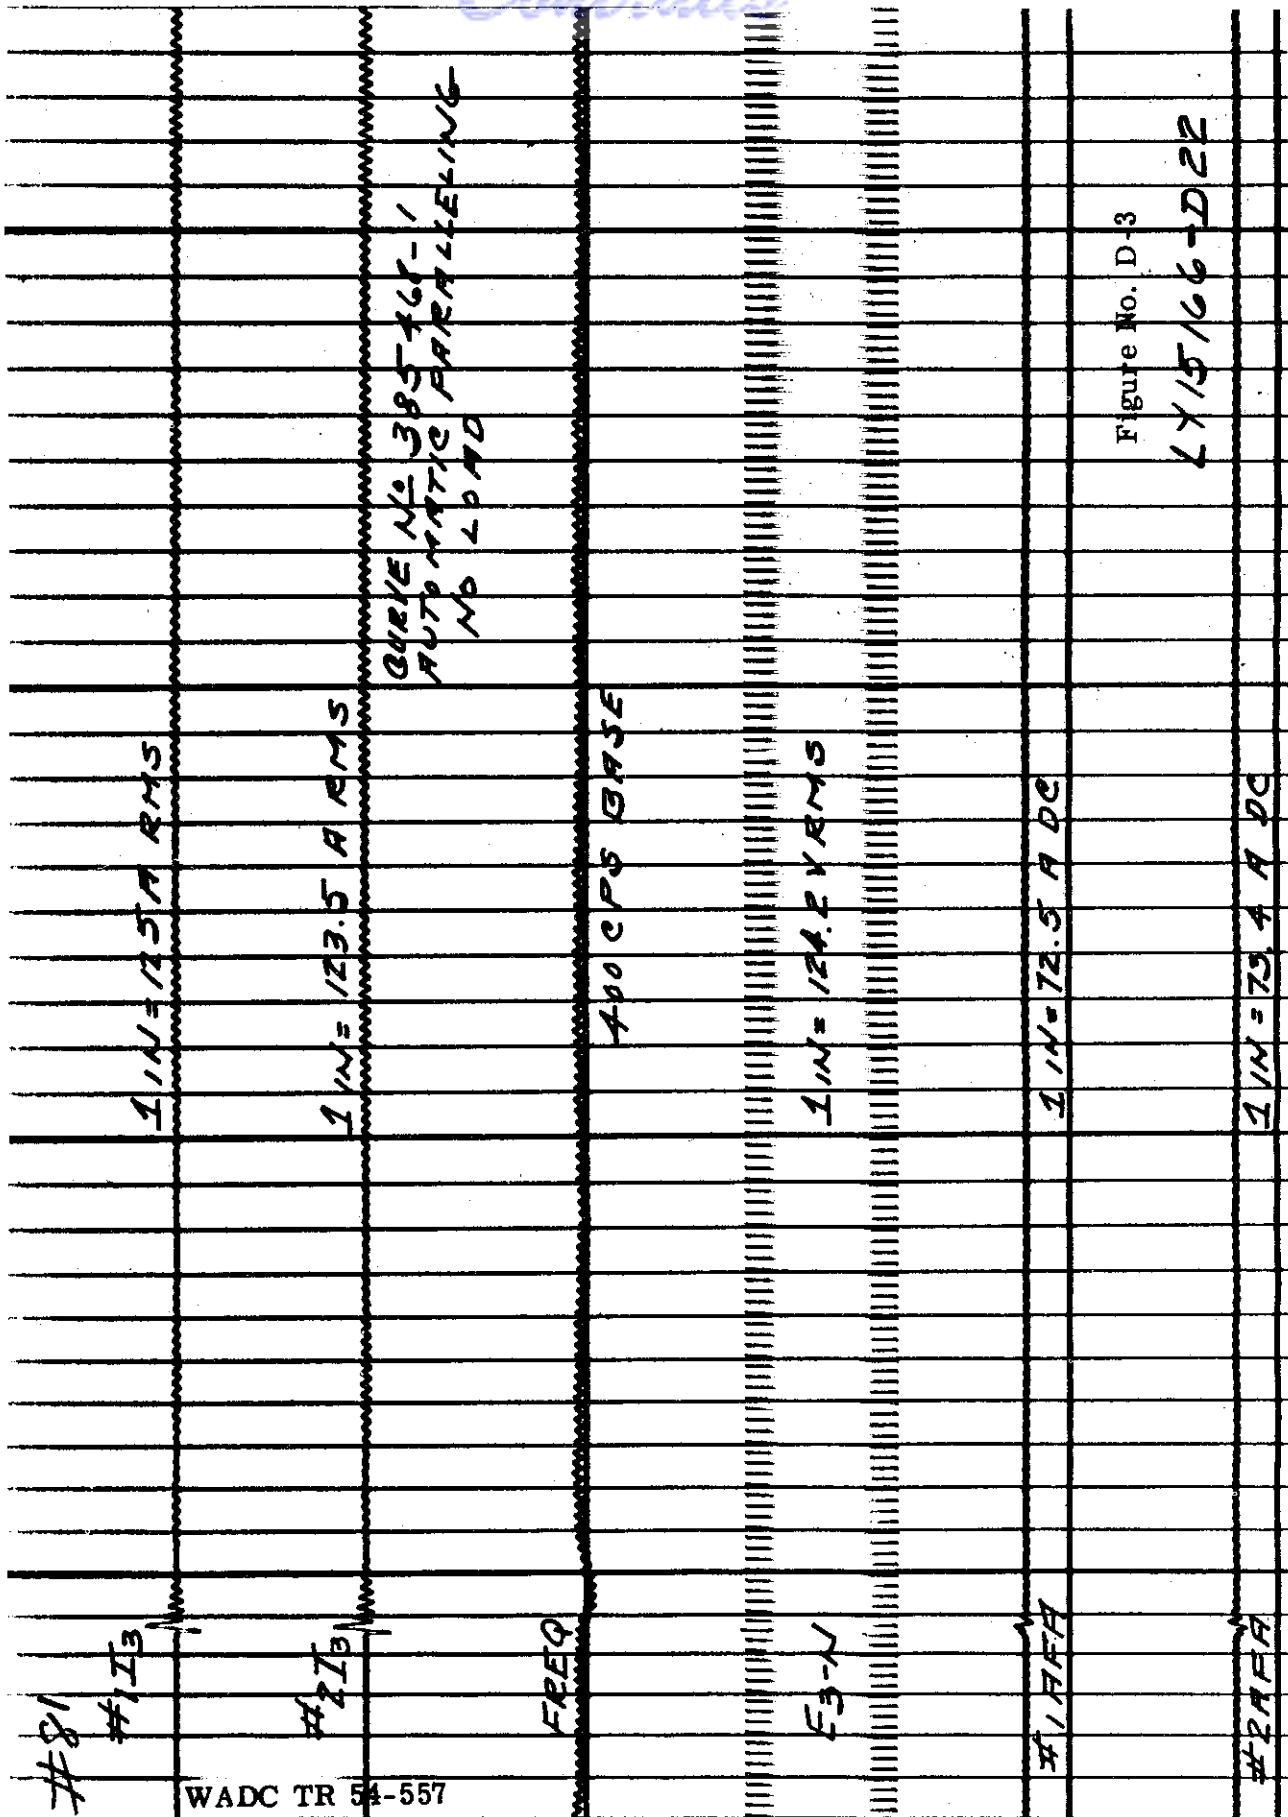 #81
#1 I3
1 IN = 125 A RMS
#2 I3
1 IN = 123.5 A RMS
CURVE No 385468-1
AUTOMATIC PARALLELING
NO LOAD
FREQ
400 CPS BASE
E3-N
1 IN = 124.2 V RMS
#1 AFA
1 IN = 72.5 A DC
Figure No. D-3
LY15166-D22
#2 AFA
1 IN = 73.4 A DC
WADC TR 54-557